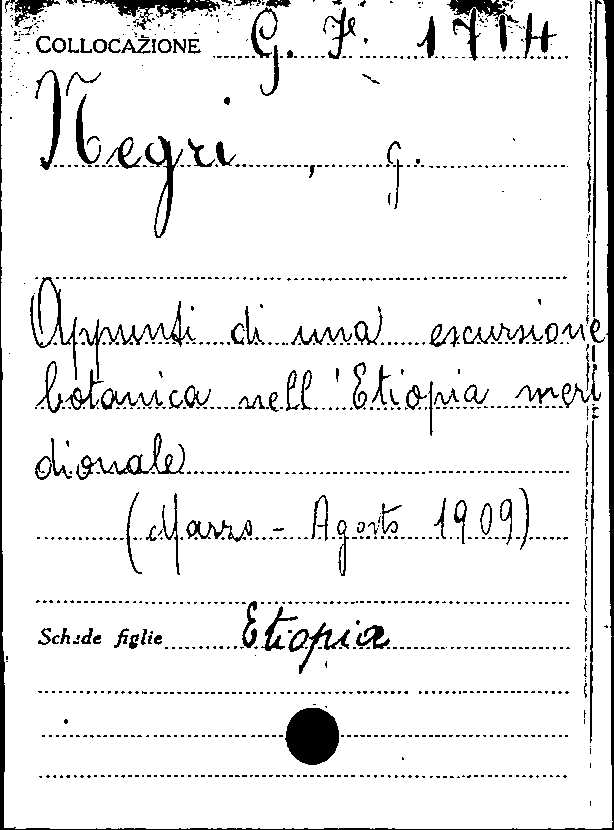 COLLOCAZIONE G. F. 1714
Negri, G.
Appunti di una escursione
botanica nell'Etiopia meri
dionale
(Marzo - Agosto 1909)
Schede figlie Etiopia